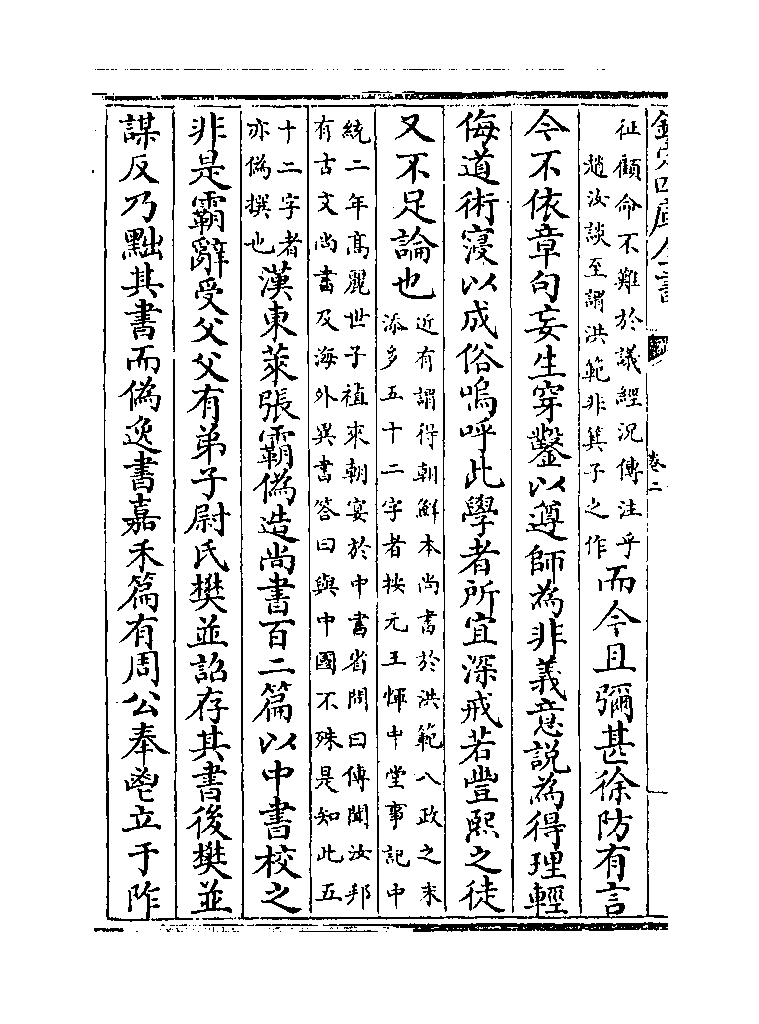 欽定四庫全書
卷二
征顧命不難於議經況傳注乎
趙汝談至謂洪範非箕子之作
而今且彌甚徐防有言
今不依章句妄生穿鑿以遵師為非義意說為得理輕
侮道術寖以成俗嗚呼此學者所宜深戒若豐熙之徒
又不足論也
近有謂得朝鮮本尚書於洪範八政之末
添多五十二字者按元王惲中堂事記中
統二年高麗世子禃來朝宴於中書省問曰傳聞汝邦
有古文尚書及海外異書答曰與中國不殊是知此五
十二字者
亦偽撰也
漢東萊張霸偽造尚書百二篇以中書校之
非是霸辭受父父有弟子尉氏樊並詔存其書後樊並
謀反乃黜其書而偽逸書嘉禾篇有周公奉鬯立于阼